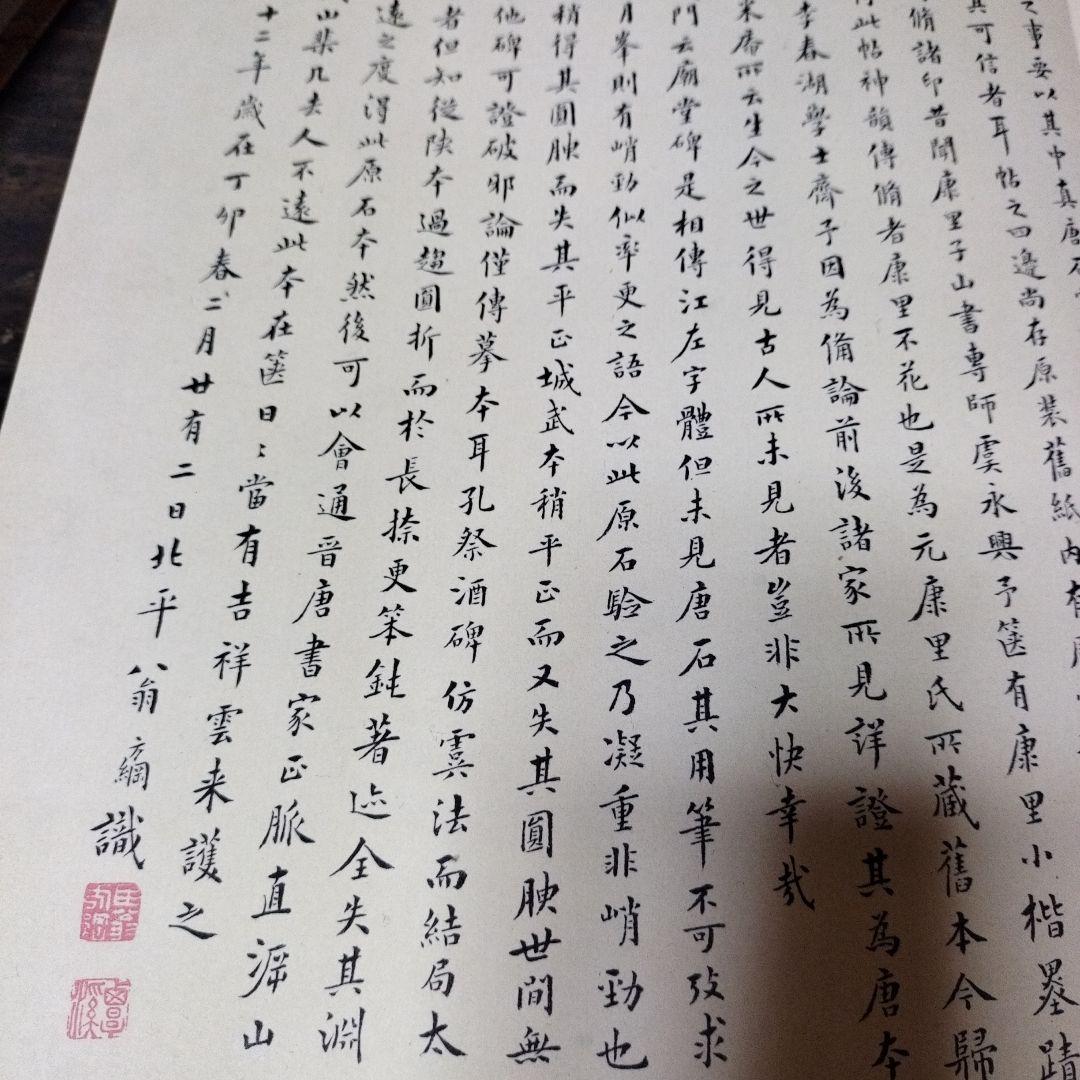 之事要以其中真唐
其可信者耳帖之四邊尚存原裝舊紙內有
脩諸印昔聞康里子山書專師虞永興予篋有康里小楷墨蹟
此帖神韻傳脩者康里不花也是為元康里氏所藏舊本今歸
李春湖學士齋予因為備論前後諸家所見詳證其為唐本
米庵所云生今之世得見古人所未見者豈非大快幸哉
門云廟堂碑是相傳江左字體但未見唐石其用筆不可攷求
月峯則有峭勁似率更之語今以此原石驗之乃凝重非峭勁也
稍得其圓腴而失其平正城武本稍平正而又失其圓腴世間無
他碑可證破邪論僅傳摹本耳孔祭酒碑仿虞法而結局太
者但知從陝本過趨圓折而於長捺更笨鈍著迹全失其淵
遠之度得此原石本然後可以會通晉唐書家正脈直泝山
山棐几去人不遠此本在篋日〻當有吉祥雲来護之
十二年歲在丁卯春二月廿有二日北平翁方綱識
覃溪